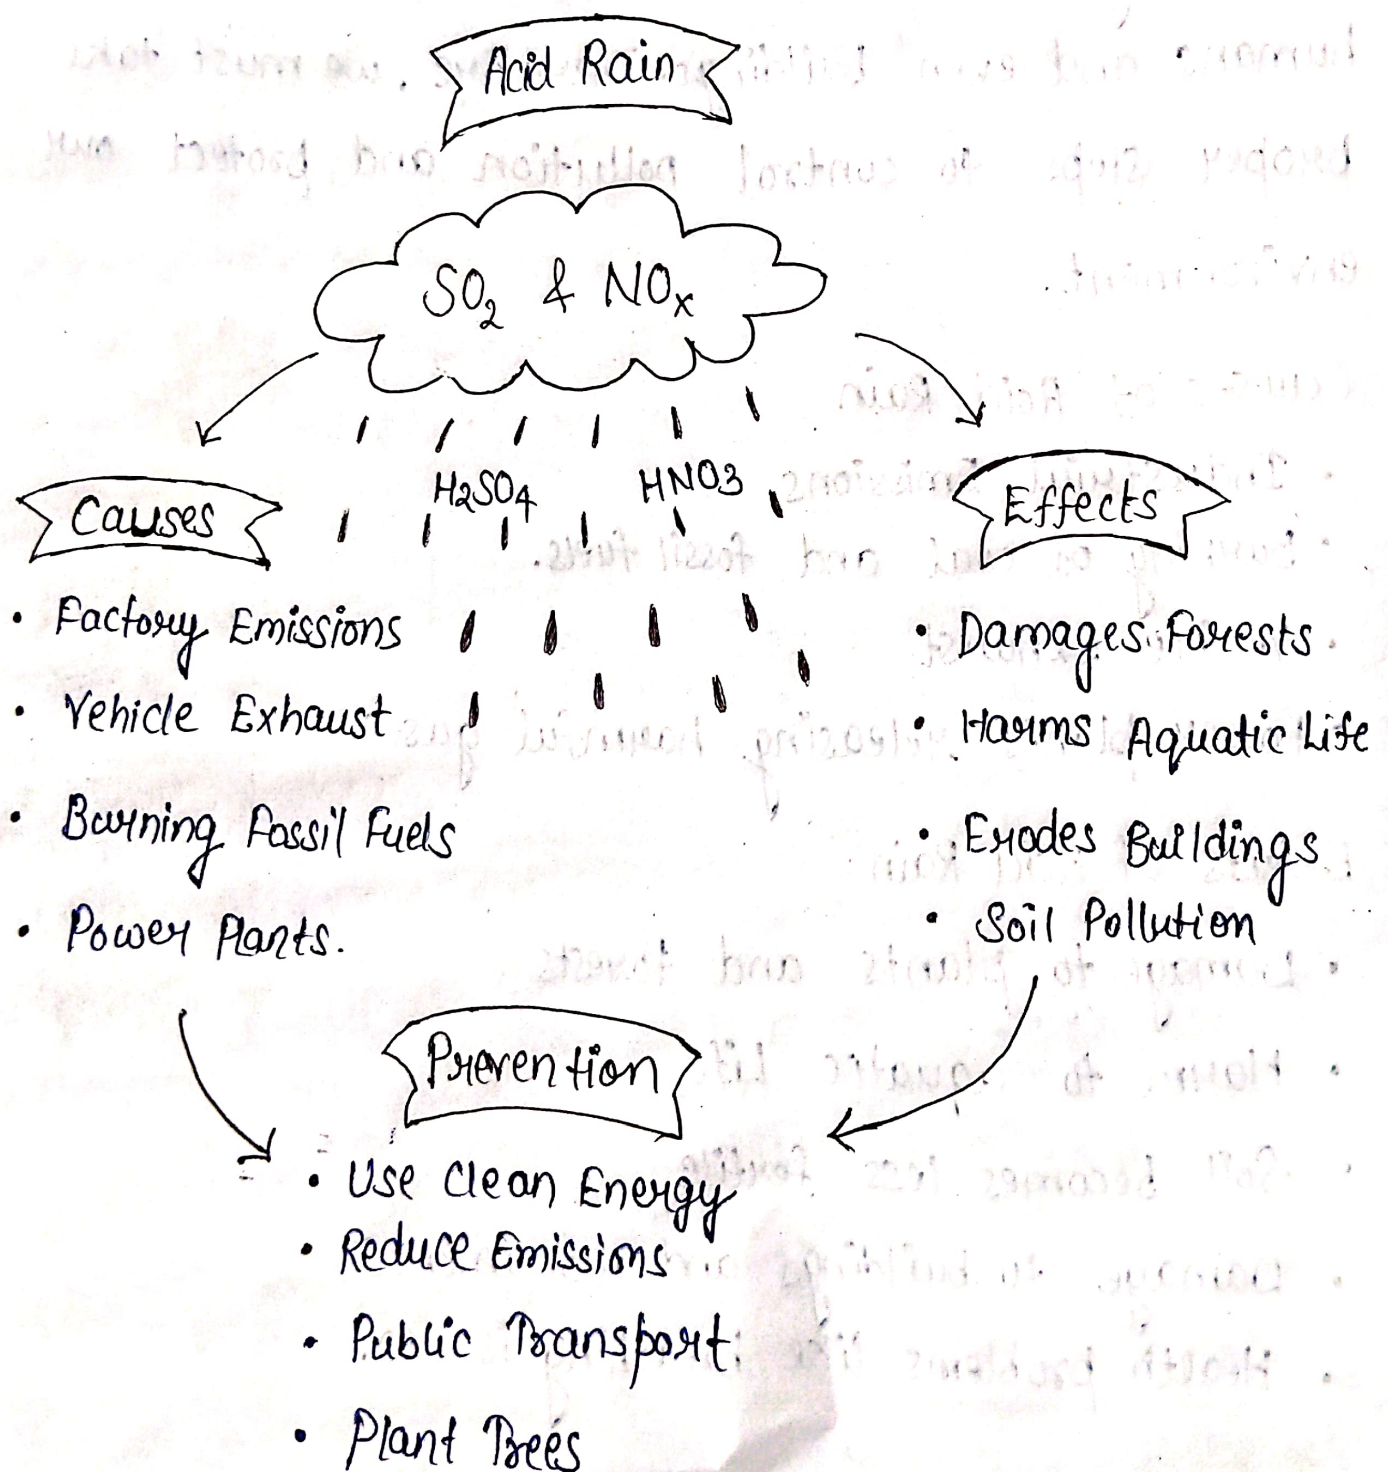 Acid Rain
SO₂ & NOₓ
H2SO4 HNO3
Causes
• Factory Emissions
• Vehicle Exhaust
• Burning Fossil Fuels
• Power Plants.
Effects
• Damages Forests
• Harms Aquatic Life
• Erodes Buildings
• Soil Pollution
Prevention
• Use Clean Energy
• Reduce Emissions
• Public Transport
• Plant Trees